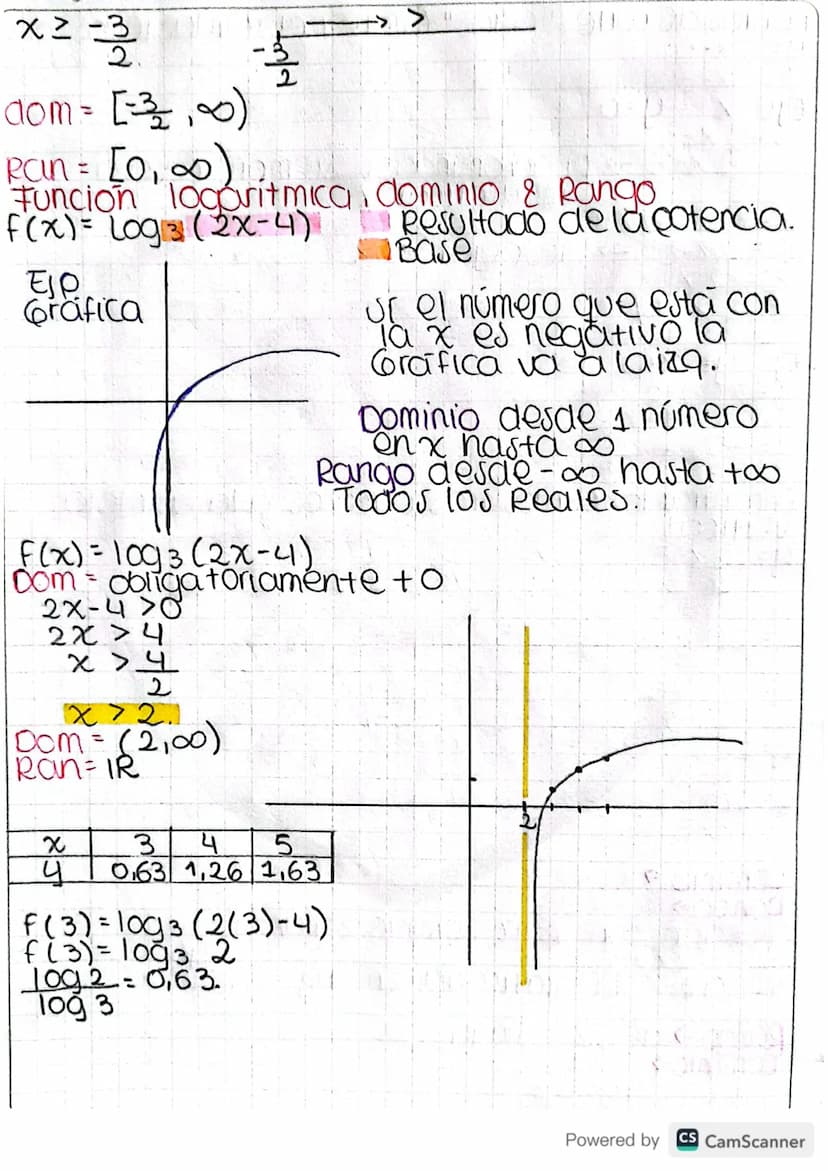 x ≥ -3/2   -3/2 → >
dom = [-3/2, ∞)
Ran = [0, ∞)
Función logarítmica, dominio & Rango
f(x) = log3 (2x-4)   Resultado de la potencia.
Base
Ejp
Gráfica
si el número que está con
la x es negativo la
Gráfica va a la izq.
Dominio desde 1 número
en x hasta ∞
Rango desde -∞ hasta +∞
Todos los Reales.
f(x) = log3 (2x-4)
Dom = obligatoriamente + 0
2x-4 >0
2x > 4
x > 4/2
x > 2.
Dom = (2,∞)
Ran = IR
2
x 3 4 5
y 0,63 1,26 1,63
f(3) = log3 (2(3)-4)
f(3) = log3 2
log 2/log 3 = 0,63.
Powered by CS CamScanner